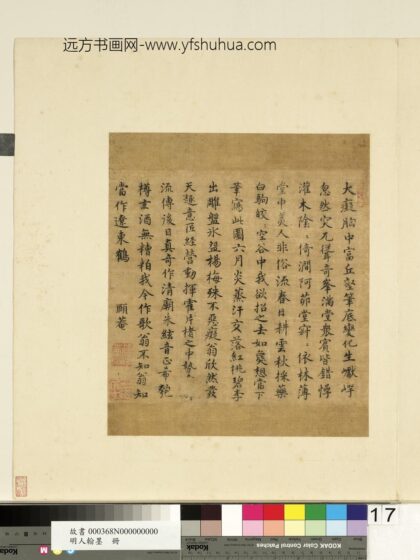 远方书画网-www.yfshuhua.com
大癡胸中富丘壑筆底變化生巘崿
忽然突兀聳奇峯滿堂衆賓皆錯愕
灌木陰〻倚澗阿茆堂寂〻依林薄
堂中美人非俗流春日耕雲秋採藥
白駒皎〻空谷中我欲招之去如
想當下
筆寫此圖六月炎蒸汗交落紅桃碧李
出雕盤氷盤楊梅殊不惡癡翁欣然發
天趣意匠經營動揮霍片楮之中勢
流傳後日真奇作清廟朱絃音正希匏
樽玄酒無糟粕我今作歌翁不知翁知
當作遼東鶴 頤菴
故書 000368N000000000
明人翰墨 冊
17
Kodak
KODAK Color Control Patches